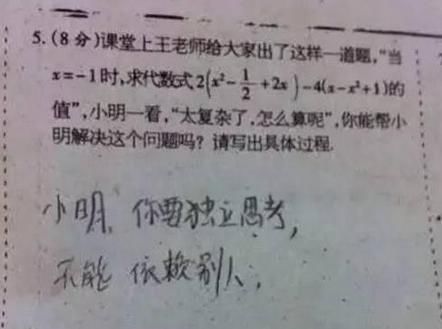 5.(8分)课堂上王老师给大家出了这样一道题,“当
x=-1时,求代数式2(x²-1/2+2x)-4(x-x²+1)的
值”,小明一看,“太复杂了,怎么算呢”,你能帮小
明解决这个问题吗?请写出具体过程.
小明,你要独立思考,
不能依赖别人.